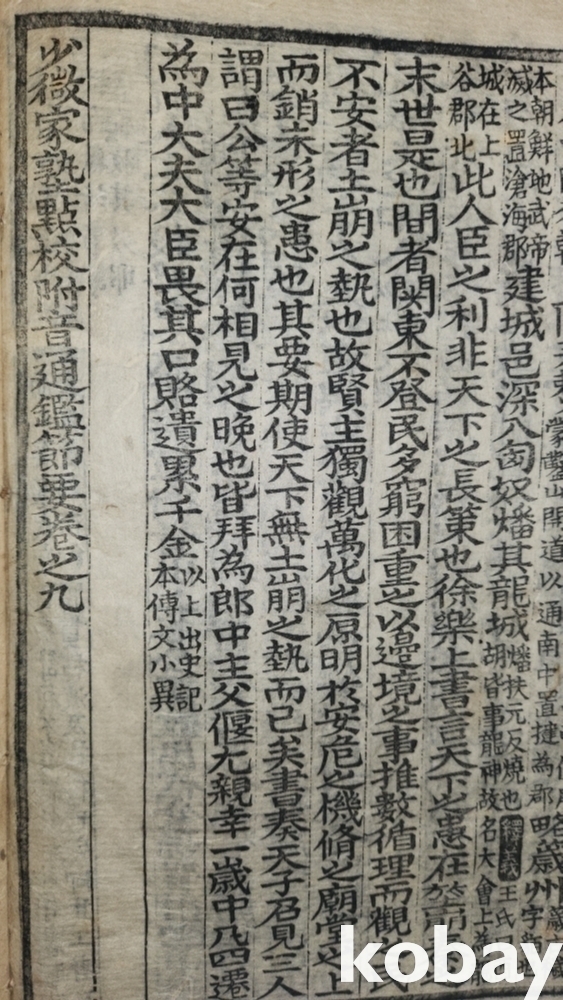 蒙鑿山開道以通南中置犍為郡
本朝鮮地武帝
滅之置滄海郡
建城邑深入匈奴燔其龍城
燔扶元反燒也
王氏
胡皆事龍神故名大會
城在上
谷郡北
此人臣之利非天下之長策也徐樂上書言天下之患在
末世是也間者関東不登民多窮困重之以邊境之事推數循理而觀民
不安者土崩之埶也故賢主獨觀萬化之原明於安危之機脩之廟堂之上
而銷未形之患也其要期使天下無土崩之埶而已矣書奏天子召見三人
謂曰公等安在何相見之晚也皆拜為郎中主父偃尤親幸一歲中凡四遷
為中大夫大臣畏其口賂遺累千金
以上出史記
本傳文小異
少微家塾點校附音通鑑節要卷之九
kobay